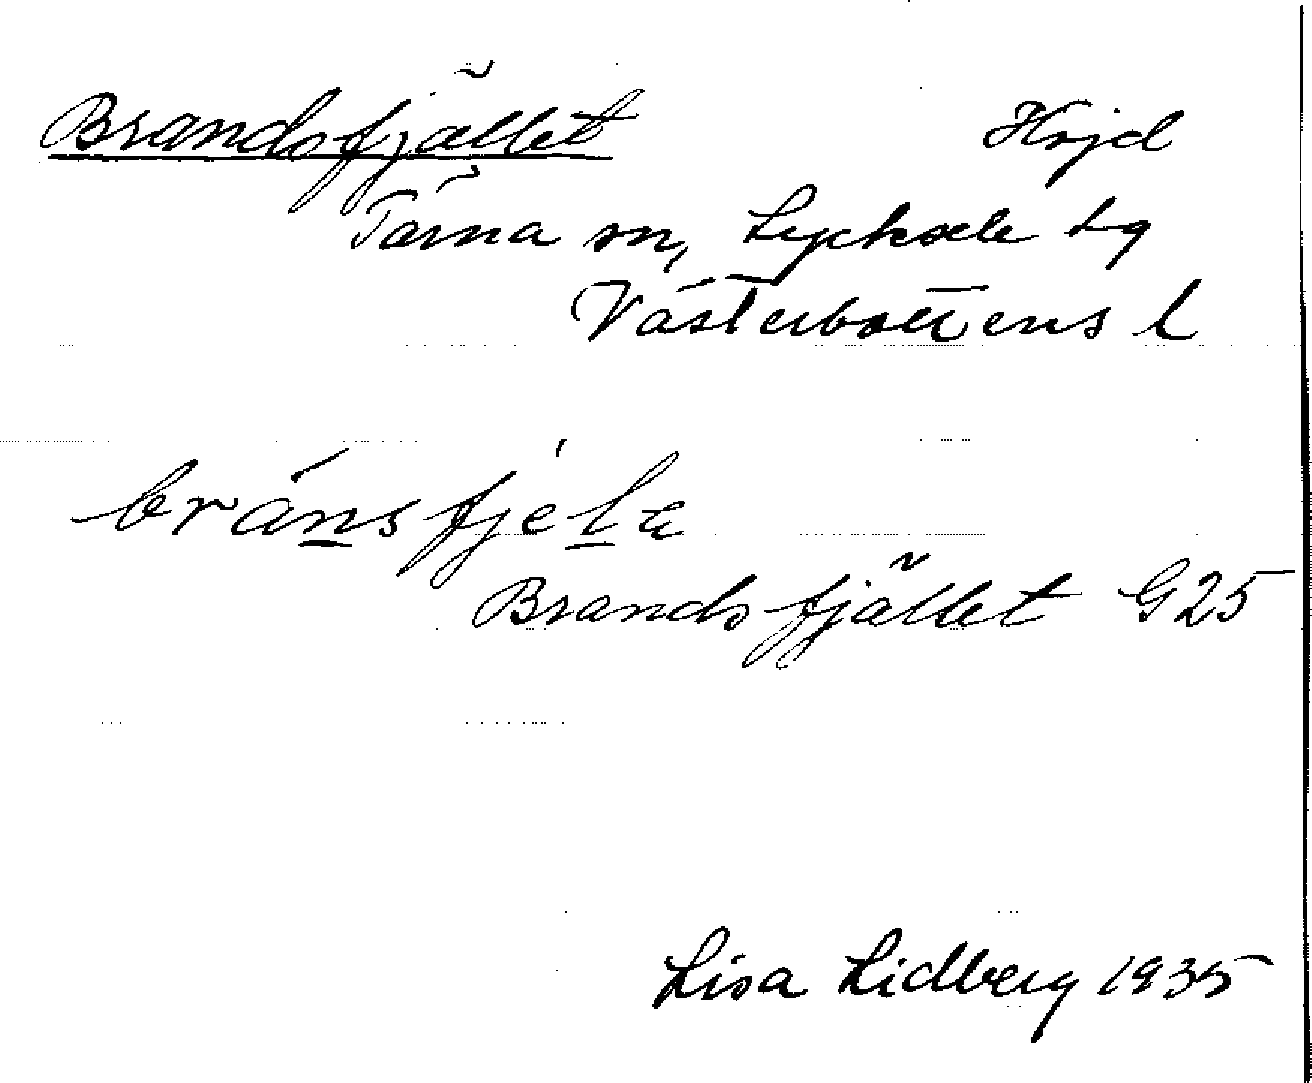 Brandsfjället Höjd
Tärna sn, Lycksele lg
Västerbottens l
bránsfjélɛ
Brandsfjället G25
Lisa Lidberg 1935